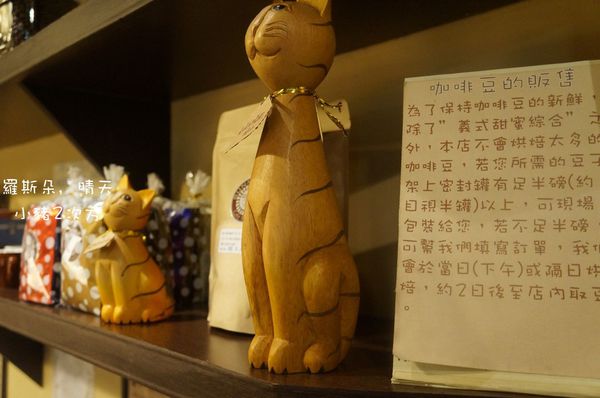 咖啡豆的販售
為了保持咖啡豆的新鮮，
除了"義式甜蜜綜合"之
外，本店不會烘焙太多的
咖啡豆，若您所需的豆子
架上密封罐有足半磅(約
目視半罐)以上，可現場
包裝給您，若不足半磅，
可幫我們填寫訂單，我們
會於當日(下午)或隔日烘
焙，約2日後至店內取豆
。
羅斯朵，晴天
小豬2次方